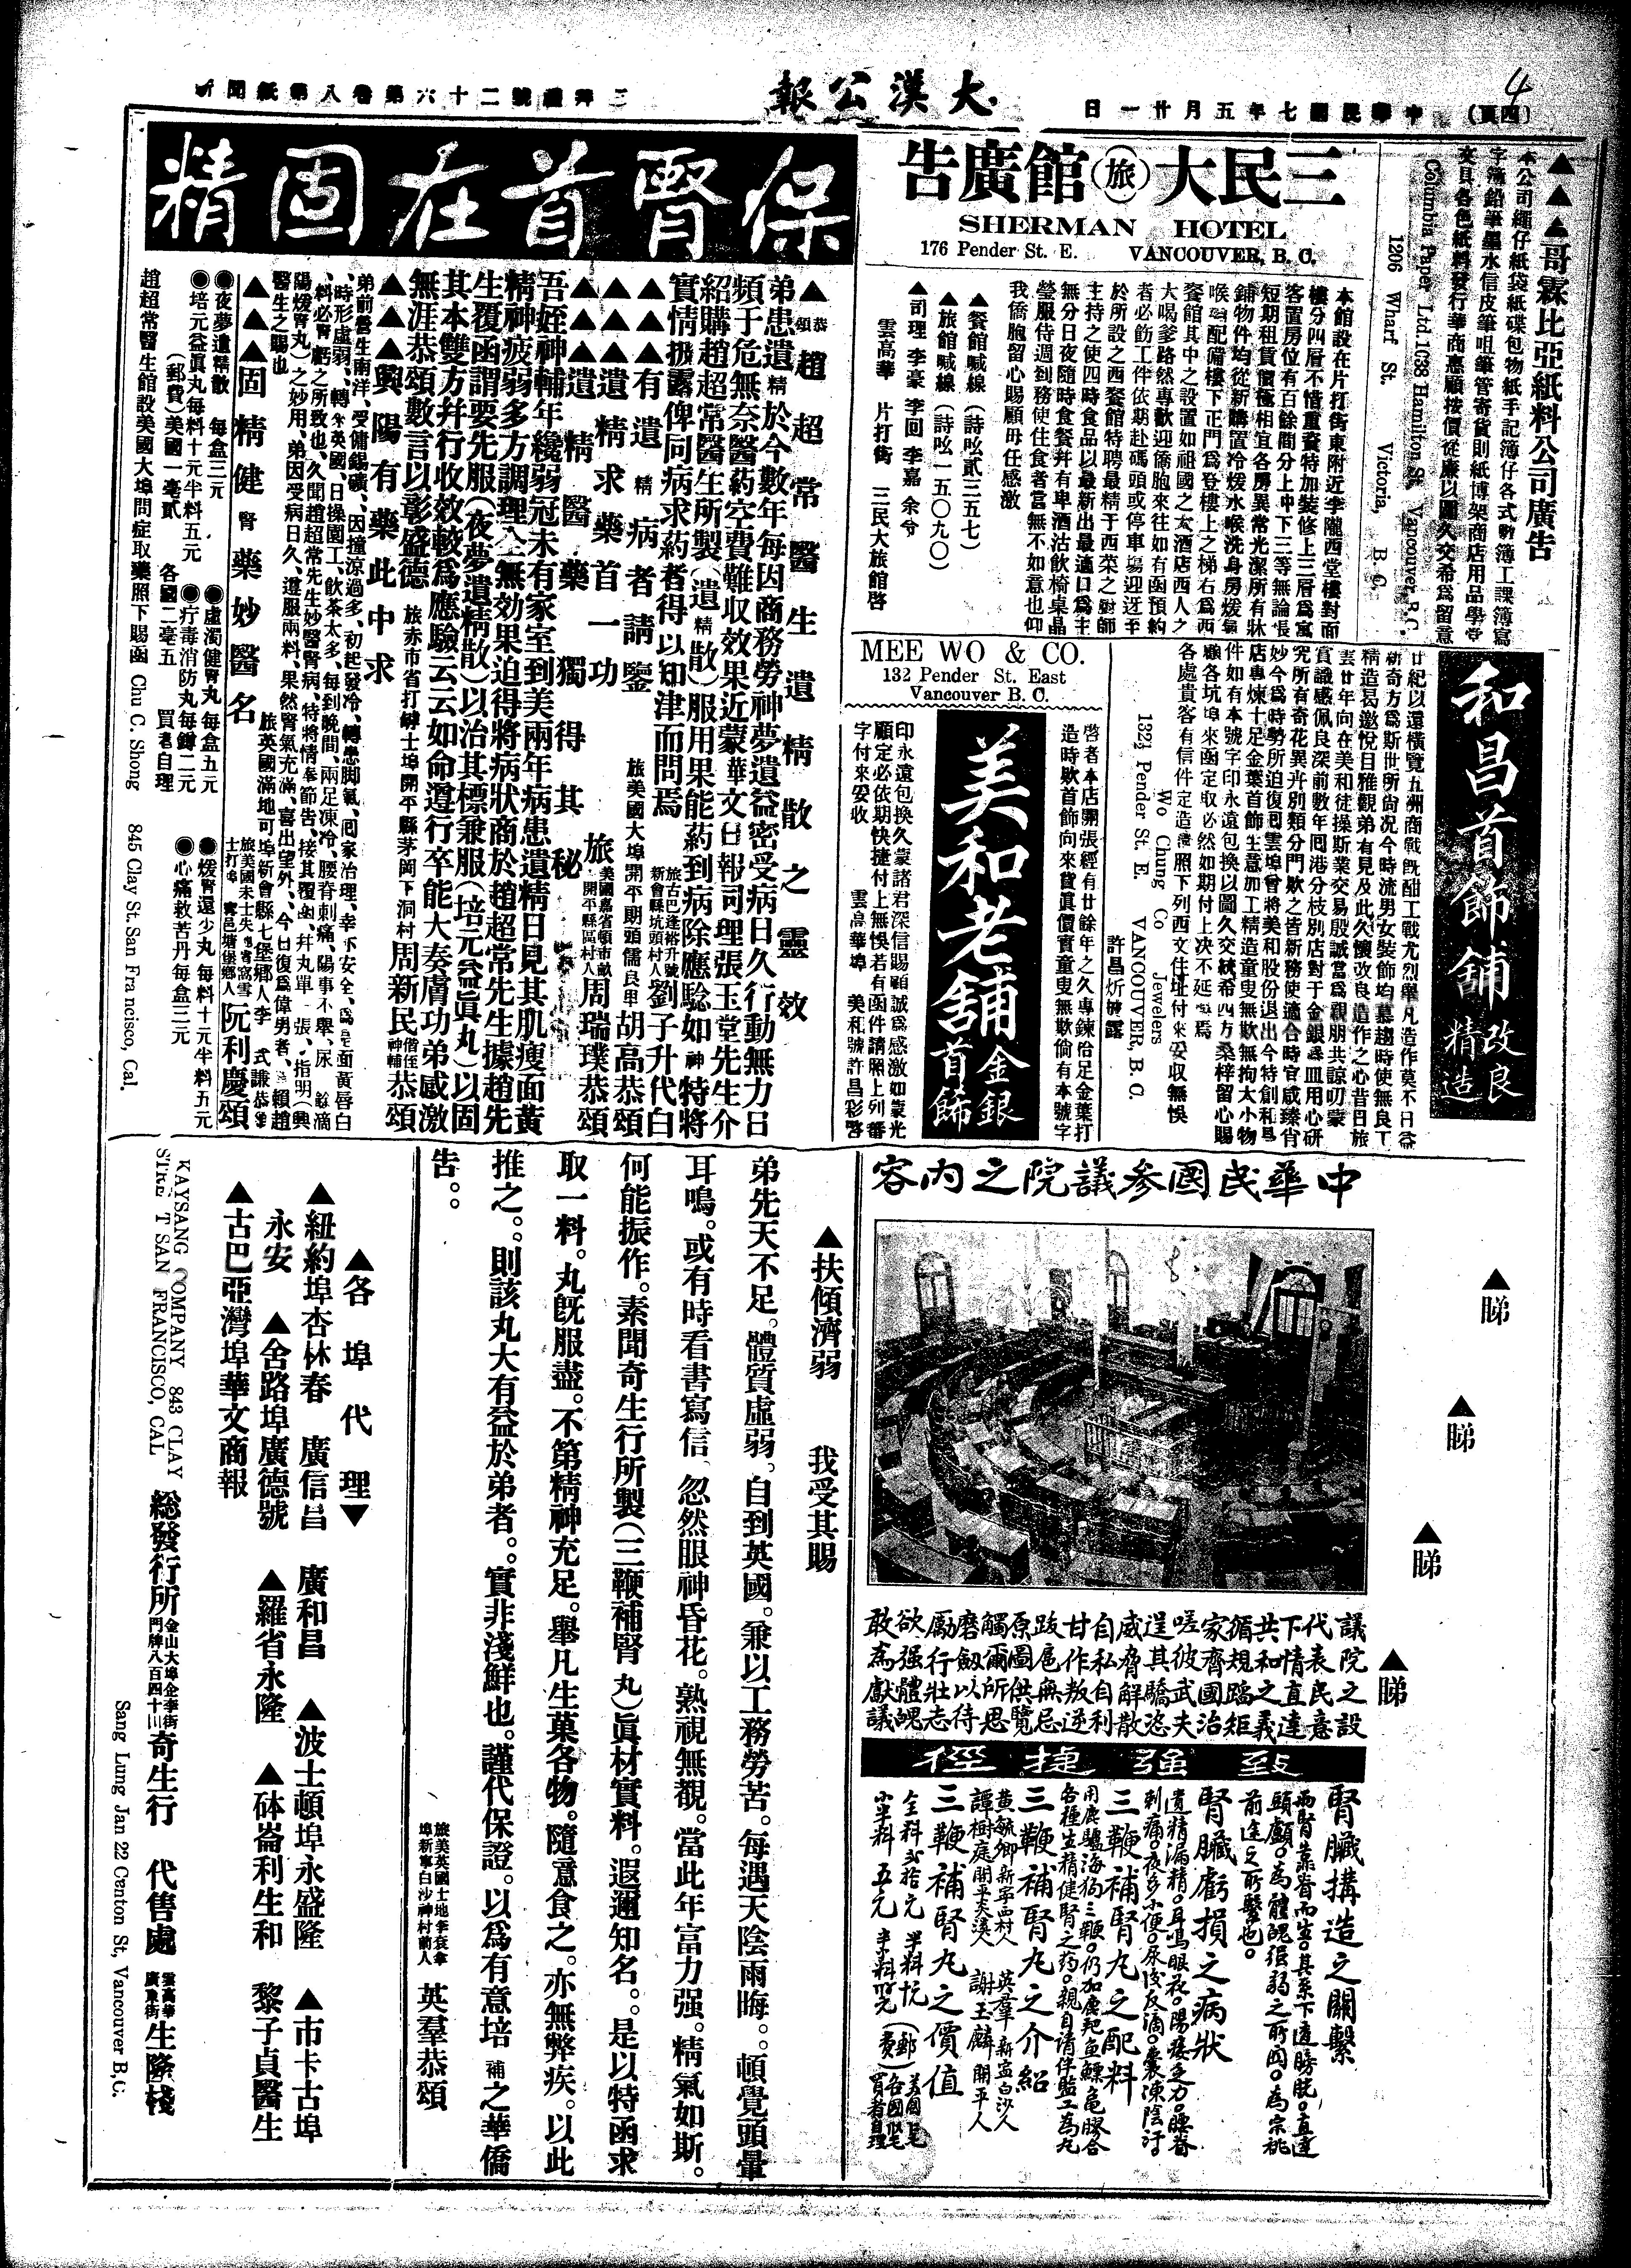 (四頁)
中華民國七年五月廿一日
大漢公報
三拜禮號二十六第卷八第紙聞新
▲▲▲哥霖比亞紙料公司廣告
本公司繩仔紙袋紙碟包物紙手記簿仔各式數簿工課簿寫
字簿鉛筆墨水信皮筆咀筆管寄貨則紙博架商店用品學堂
夾具各色紙料發行華商惠顧按價從廉以圖久交希為留意
Columbia Paper Ltd. 1038 Hamilton St. Vancouver, B. C.
1206 Wharf St. Victoria, B. C.
三民大(旅)館廣告
SHERMAN HOTEL
176 Pender St. E. VANCOUVER, B. C.
本館設在片打街東附近李隴西堂樓對面
樓分四層不惜重資特加裝修上三層為寓
客置房位有百餘間分上中下三等無論長
短期租賃價極相宜各房異常光潔所有牀
鋪物件均從新購置冷煖水喉洗身房煖氣
喉㗎配備樓下正門為登樓上之梯右為西
餐館其中之設置如祖國之大酒店西人之
大喝爹路然專歡迎僑胞來往如有函預約
者必飭工件依期赴碼頭或停車場迎迓至
於所設之西餐館特聘最精于西菜之廚師
主持之使四時食品以最新出最適口為主
無分日夜隨時食餐幷有卑酒沽飲椅桌晶
瑩服侍週到務使住食者當無不如意也仰
我僑胞留心賜顧毋任感激
▲餐館喊線(詩吆貳三五七)
▲旅館喊線(詩吆一五〇九〇)
▲司理 李豪 李回 李嘉 余兮
雲高華 片打街 三民大旅館啓
和昌首飾舖
改良精造
廿紀以還橫覽五洲商戰旣酣工戰尤烈舉凡造作莫不日益
嶄奇方為斯世所尙况今時流男女裝飾均慕趨時使無良工
精造曷邀悅目雅觀弟有見及此久懷改良造作之心昔日旅
雲廿年向在美和徒操斯業交易殷誠當為親朋共諒叨蒙
賞識感佩良深前數年囘港分枝別店對于金銀器皿用心研
究所有奇花異卉別類分門歎之皆新務使適合時官咸臻肖
妙今為時勢所迫復囘雲埠曾將美和股份退出今特創和昌
店專煉十足金葉首飾生意加工精造童叟無欺無拘大小物
件如有本號字印永遠包換以圖久交統希四方桑梓留心賜
顧各坑埠來函定取必然如期付上决不延誤焉
各處貴客有信件定造請照下列西文住址付來妥收無悞
許昌炘披露
Wo Chung Co Jewelers
132½ Pender St. E. VANCOUVER, B. C.
MEE WO & CO.
132 Pender St. East
Vancouver B. C.
美和老舖
金銀首飾
啓者本店開張經有廿餘年之久專鍊佮足金葉打
造時欵首飾向來貨眞價實童叟無欺倘有本號字
印永遠包換久蒙諸君深信賜顧誠為感激如蒙光
顧定必依期快捷付上無悞若有函件請照上列番
字付來妥收 雲高華埠 美和號許昌彩啓
保腎首在固精
▲恭頌趙超常醫生遺精散之靈效
弟患遺精於今數年每因商務勞神夢遺益密受病日久行動無力日
頻于危無奈醫葯空費難收效果近蒙華文日報司理張玉堂先生介
紹購趙超常醫生所製(遺精散)服用果能葯到病除應騐如神特將
實情掇露俾同病求葯者得以知津而問焉
旅古巴逢裕升號新會縣坑頭村人劉子升代白
▲▲▲有遺精病者請鑒
旅美國大埠開平期頭儒良里胡高恭頌
▲▲▲遺精求藥首一功
旅美國嘉省頓市畝開平縣區村人周瑞璞恭頌
▲▲▲遺精醫藥獨得其秘
吾姪神輔年纔弱冠未有家室到美兩年病患遺精日見其肌瘦面黃
精神疲弱多方調理全無効果迫得將病狀商於趙超常先生據趙先
生覆函謂要先服(夜夢遺精散)以治其標兼服(培元益眞丸)以固
其本雙方幷行收效較為應驗云云如命遵行卒能大奏膚功弟感激
無涯恭頌數言以彰盛德 旅赤市省打碑士埠開平縣茅岡下洞村周新民偕侄神輔恭頌
▲▲▲興陽有藥此中求
弟前曾生南洋、受傭錫礦、因撞涼過多、初起發冷、轉患脚氣、囘家治理、幸亦安全、
時形虛弱、轉來英國、日操園工、飲茶太多、每到晚間、兩足凍冷、腰脊刺痛、陽事不舉、尿餘滴
料必腎虧之所致也、久聞趙超常先生妙醫腎病、特將情奉節告、接其覆函、幷丸單一張、指明(興
陽煖腎丸)之妙用、弟因受病日久、遵服兩料、果然腎氣充滿、喜出望外、今日復為偉男者、賴趙
醫生之賜也
旅英國滿地可埠新會縣七堡鄉人李式謙恭頌
▲▲▲固精健腎藥妙醫名
旅美國朱士失地省窩雪士打埠寗邑塘堡鄉人阮利慶頌
●夜夢遺精散 每盒三元
●虛濁健腎丸 每盒五元
●煖腎還少丸 每料十元半料五元
●培元益眞丸每料十元半料五元
●疔毒消防丸每罇二元
●心痛救苦丹每盒三元
(郵費)美國一毫貳 各國二毫五 買者自理
趙超常醫生館設美國大埠問症取藥照下賜函 Chu C. Shong 845 Clay St. San Francisco, Cal.
▲睇 ▲睇 ▲睇 ▲睇
中華民國參議院之內容
議院之設
代表民意
下情直達
共和之義
循規蹈矩
家齊國治
嗟彼武夫
逞其驕恣
威脅解散
自私自利
甘作叛逆
跋扈無忌
原圖供覽
觸爾所思
磨劍以待
厲行壯志
欲强體魄
敢為獻議
致强捷徑
腎臟搆造之關繫
兩腎靠脊而生。其系下通膀胱。直達
頭顱。為體魄强弱之所關。為宗祧
前途之所繫也。
腎臟虧損之病狀
遺精漏精。耳鳴眼花。陽痿乏力。腰脊
刺痛。夜多小便。尿後反滴。囊凍陰汗。
三鞭補腎丸之配料
用鹿驢海狗三鞭。仍加鹿茸魚鰾龜膠合
各種生精健腎之葯。親自請伴監工為丸
三鞭補腎丸之介紹
黃毓卿新寕四村人 英羣新寕白沙人
譚樹庭開平炎溪人 謝玉麟開平人
三鞭補腎丸之價值
全料弍拾元 半料十元
小半料五元
▲扶傾濟弱 我受其賜
弟先天不足。體質虛弱。自到英國。兼以工務勞苦。每遇天陰雨晦。。頓覺頭暈
耳鳴。或有時看書寫信、忽然眼神昏花。熟視無覩。當此年富力强。精氣如斯。
何能振作。素聞奇生行所製(三鞭補腎丸)眞材實料。遐邇知名。。是以特函求
取一料。丸旣服盡。不第精神充足。舉凡生菓各物。隨意食之。亦無弊疾。以此
推之。。則該丸大有益於弟者。。實非淺鮮也。謹代保證。以為有意培補之華僑
告。。
旅美英國士地李袞拿埠新寧白沙神村前人 英羣恭頌
▲各埠代理▼
▲紐約埠杏林春 廣信昌 廣和昌 ▲波士頓埠永盛隆 ▲市卡古埠
永安 ▲舍路埠廣德號 ▲羅省永隆 ▲砵崙利生和 黎子貞醫生
▲古巴亞灣埠華文商報
KAYSANG COMPANY 843 CLAY
STREET SAN FRANCISCO, CAL
総發行所金山大埠企李街門牌八百四十三奇生行 代售處雲高華廣東街生隆棧
Sang Lung Jan 22 Centon St, Vancouver B,C.